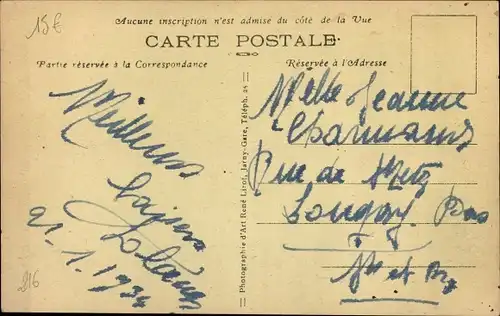 15€
Aucune inscription n'est admise du côté de la Vue
CARTE POSTALE
Partie réservée à la Correspondance
Réservée à l'Adresse
Meilleurs
21.1.1934
216
Photographie d'Art René Lirot, Jarny-Gare, Téléph. 24
Melle Jeanne
Rue de Metz
Longwy Bas